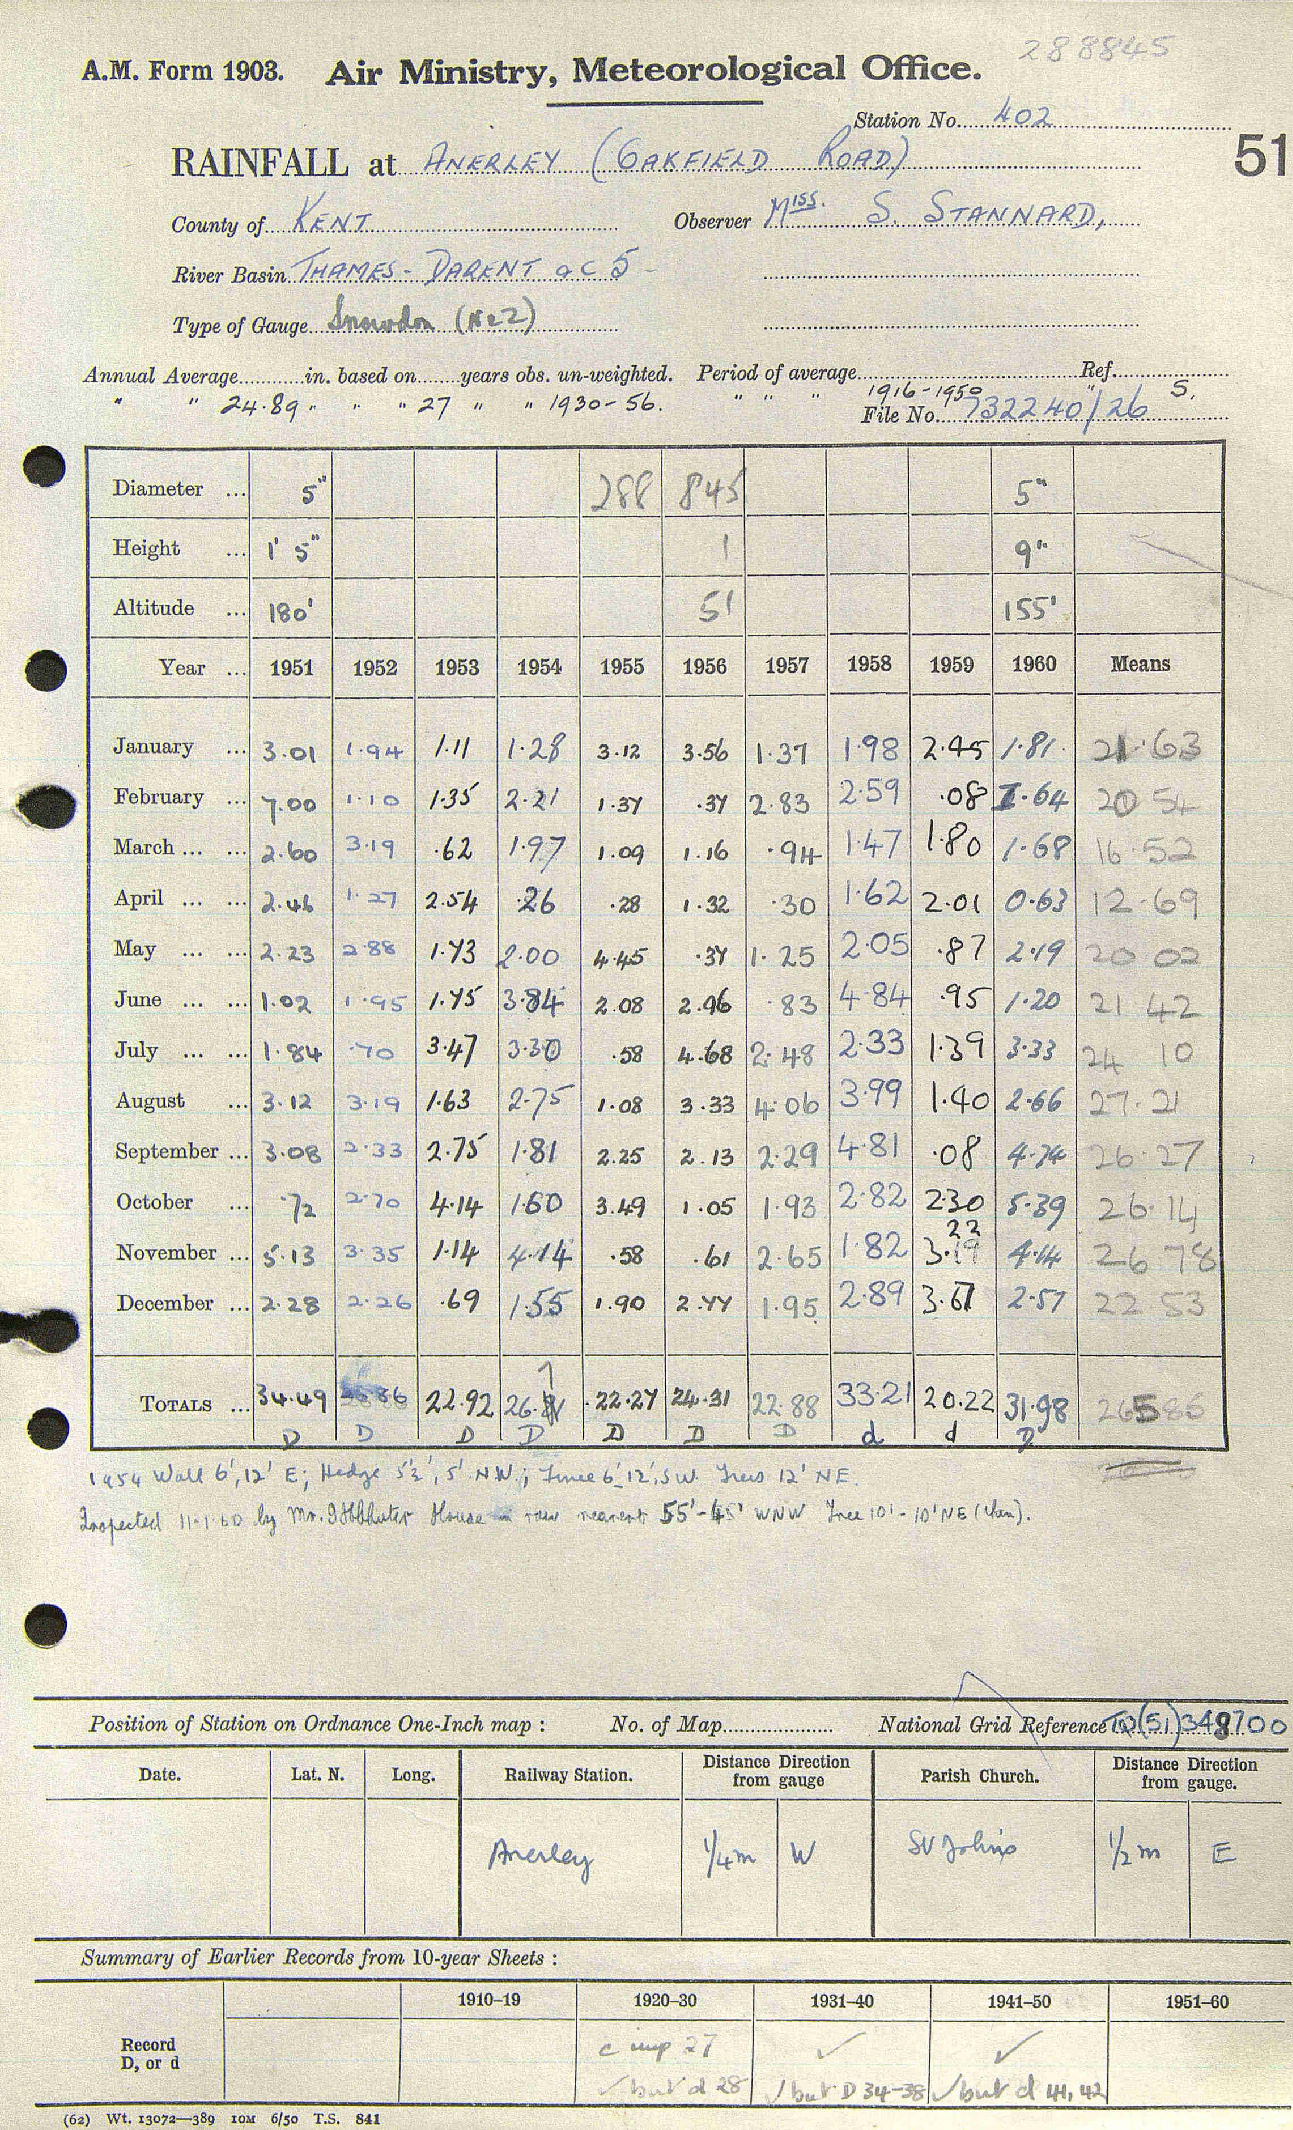 288845
A.M. Form 1903. Air Ministry, Meteorological Office.
Station No. 402
51
RAINFALL at ANERLEY (OAKFIELD ROAD)
County of KENT Observer Miss. S. STANNARD,
River Basin THAMES - DARENT a C 5
Type of Gauge Snowdon (No 2)
Annual Average............in. based on........years obs. un-weighted. Period of average 1916-1950 Ref. S.
" " 24.89 " " " 27 " " 1930-56. " " " "
File No. 732240/26
Diameter ... 5" 288 845 5"
Height ... 1' 5" 1 9"
Altitude ... 180' 51 155'
Year ... 1951 1952 1953 1954 1955 1956 1957 1958 1959 1960 Means
January ... 3.01 1.94 1.11 1.28 3.12 3.56 1.37 1.98 2.45 1.81 21.63
February ... 7.00 1.10 1.35 2.21 1.37 .37 2.83 2.59 .08 1.64 20 54
March ... ... 2.60 3.19 .62 1.97 1.09 1.16 .94 1.47 1.80 1.68 16.52
April ... ... 2.46 1.27 2.54 .26 .28 1.32 .30 1.62 2.01 0.63 12.69
May ... ... 2.23 2.88 1.73 2.00 4.45 .37 1.25 2.05 .87 2.19 20 02
June ... ... 1.02 1.95 1.75 3.84 2.08 2.96 .83 4.84 .95 1.20 21 42
July ... ... 1.84 .70 3.47 3.30 .58 4.68 2.48 2.33 1.39 3.33 24 10
August ... 3.12 3.19 1.63 2.75 1.08 3.33 4.06 3.99 1.40 2.66 27.21
September ... 3.08 2.33 2.75 1.81 2.25 2.13 2.29 4.81 .08 4.74 26.27
October ... .72 2.70 4.14 1.60 3.49 1.05 1.93 2.82 2.30 5.39 26.14
November ... 5.13 3.35 1.14 4.14 .58 .61 2.65 1.82 3.22 4.14 26 78
December ... 2.28 2.26 .69 1.55 1.90 2.77 1.95 2.89 3.67 2.57 22 53
TOTALS ... 34.49 26.86 22.92 26.71 22.27 24.31 22.88 33.21 20.22 31.98 26585
D D D D D D D d d D
1954 Wall 6', 12' E; Hedge 5½', 5' NW; Fence 6' 12', SW. Trees 12' NE.
Inspected 11.1.60 by Mr. House nearest 55'-45' WNW Tree 10'-10' NE
Position of Station on Ordnance One-Inch map : No. of Map.................... National Grid Reference TQ(51)348700
Date. Lat. N. Long. Railway Station. Distance Direction from gauge Parish Church. Distance Direction from gauge.
Anerley ¼m W St Johns ½m E
Summary of Earlier Records from 10-year Sheets :
1910–19 1920–30 1931–40 1941–50 1951–60
Record D, or d
c imp 27 ✓ ✓
✓ but d 28 ✓ but D 34-38 ✓ but d 41, 42
(62) Wt. 13072—389 10M 6/50 T.S. 841